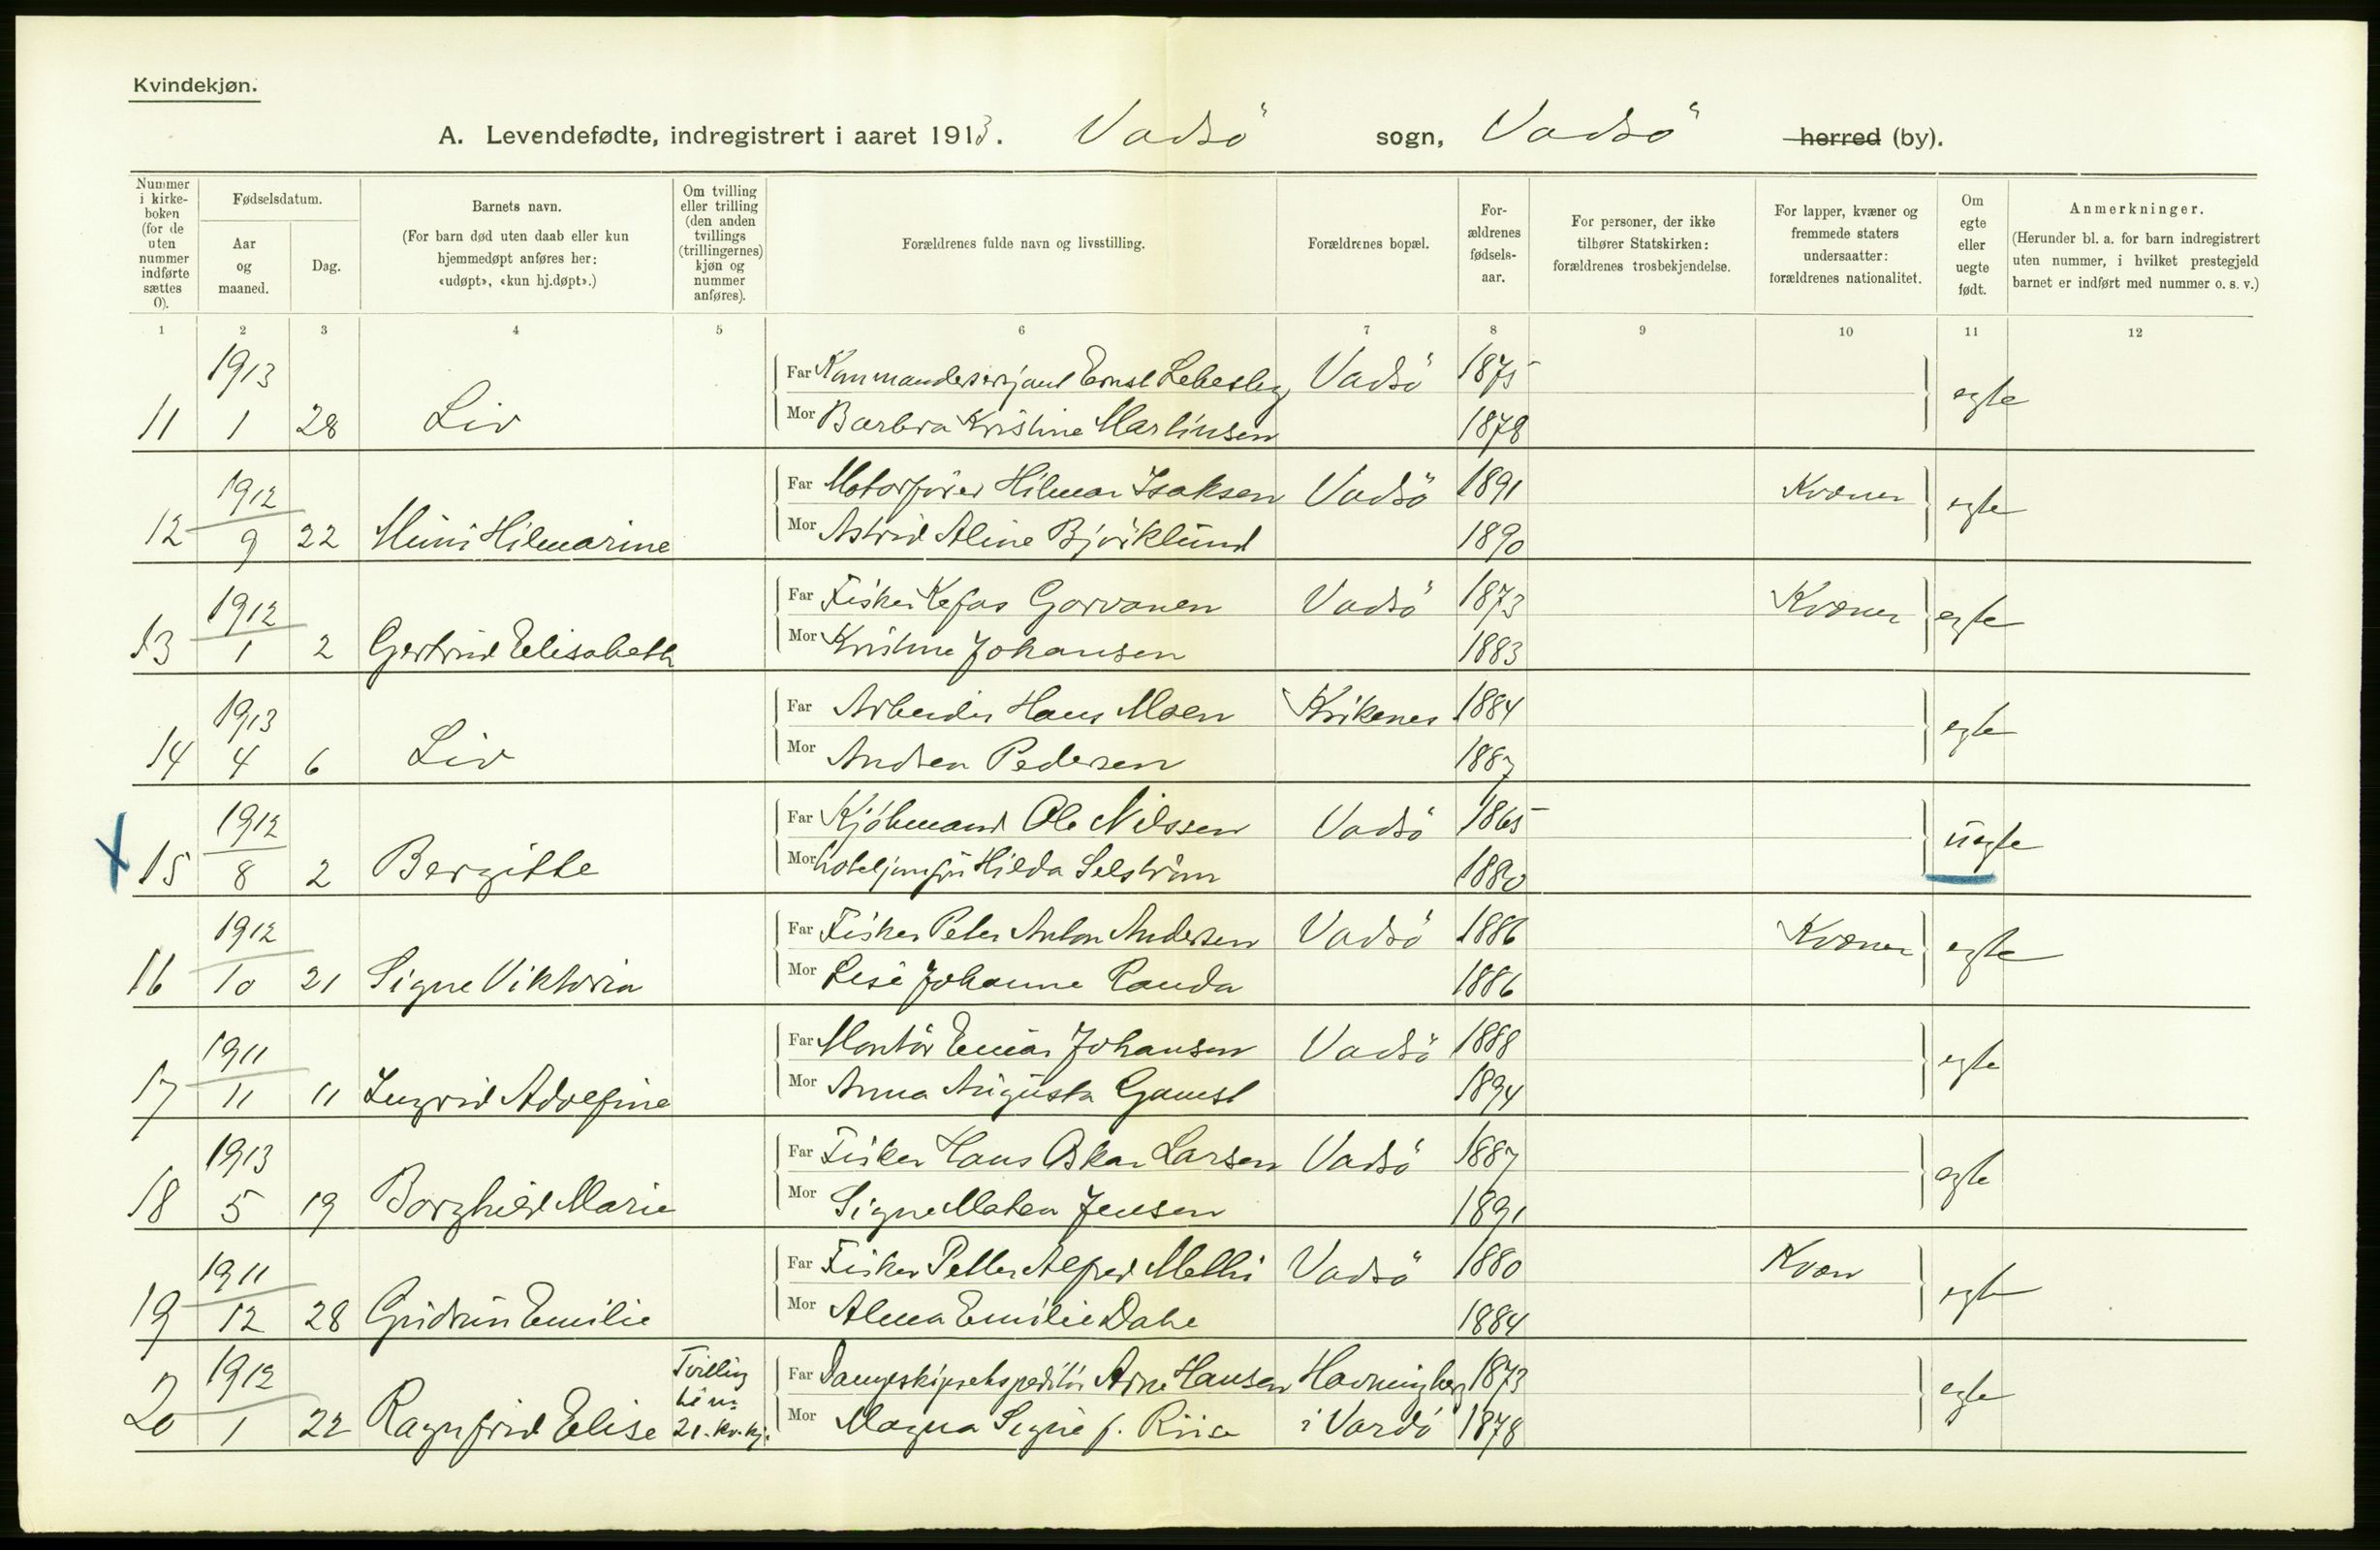 Kvindekjøn.
A. Levendefødte, indregistrert i aaret 1913. Vadsö sogn, Vadsö herred (by).
Nummer i kirkeboken (for de uten nummer indførte sættes 0).
Fødselsdatum.
Aar og maaned.
Dag.
Barnets navn.
(For barn død uten daab eller kun hjemmedøpt anføres her: «udøpt», «kun hj.døpt».)
Om tvilling eller trilling (den anden tvillings (trillingernes) kjøn og nummer anføres).
Forældrenes fulde navn og livsstilling.
Forældrenes bopæl.
Forældrenes fødselsaar.
For personer, der ikke tilhører Statskirken: forældrenes trosbekjendelse.
For lapper, kvæner og fremmede staters undersaatter: forældrenes nationalitet.
Om egte eller uegte født.
Anmerkninger.
(Herunder bl. a. for barn indregistrert uten nummer, i hvilket prestegjeld barnet er indført med nummer o. s. v.)
1 2 3 4 5 6 7 8 9 10 11 12
1913 Far Kommandersersjant Ernst Lebesby Vadsö 1875 egte
11 1 28 Liv Mor Barbra Kristine Martinsen 1878
1912 Far Motorförer Hilmar Isaksen Vadsö 1891 Kvæner egte
12 9 22 Mimi Hilmarine Mor Astrid Aline Björklund 1890
1912 Far Fisker Kefas Gorvanen Vadsö 1873 Kvæner egte
13 1 2 Gertrud Elisabeth Mor Kristine Johansen 1883
1913 Far Arbeider Hans Moen Kirkenes 1884 egte
14 4 6 Liv Mor Andrea Pedersen 1887
1912 Far Kjöbmand Ole Nilssen Vadsö 1865 uegte
X 15 8 2 Bergitte Mor hoteljomfru Hilda Selström 1880
1912 Far Fisker Peter Anton Andersen Vadsö 1886 Kvæner egte
16 10 21 Signe Viktoria Mor Lise Johanne Randa 1886
1911 Far Montör Einar Johansen Vadsö 1888 egte
17 11 11 Ingrid Adolfine Mor Anna Augusta Gamst 1894
1913 Far Fisker Hans Oskar Larsen Vadsö 1887 egte
18 5 19 Borghild Marie Mor Signe Maten Jensen 1891
1911 Far Fisker Petter Alfred Methi Vadsö 1880 Kvæn egte
19 12 28 Gudrun Emilie Mor Alma Emilie Dahl 1884
1912 Tvilling til no 21. kv.kj. Far Dampskipsekspeditör Arne Hansen Havningberg 1873 egte
20 1 22 Ragnfrid Elise Mor Magna Signe f. Riise i Vardö 1878